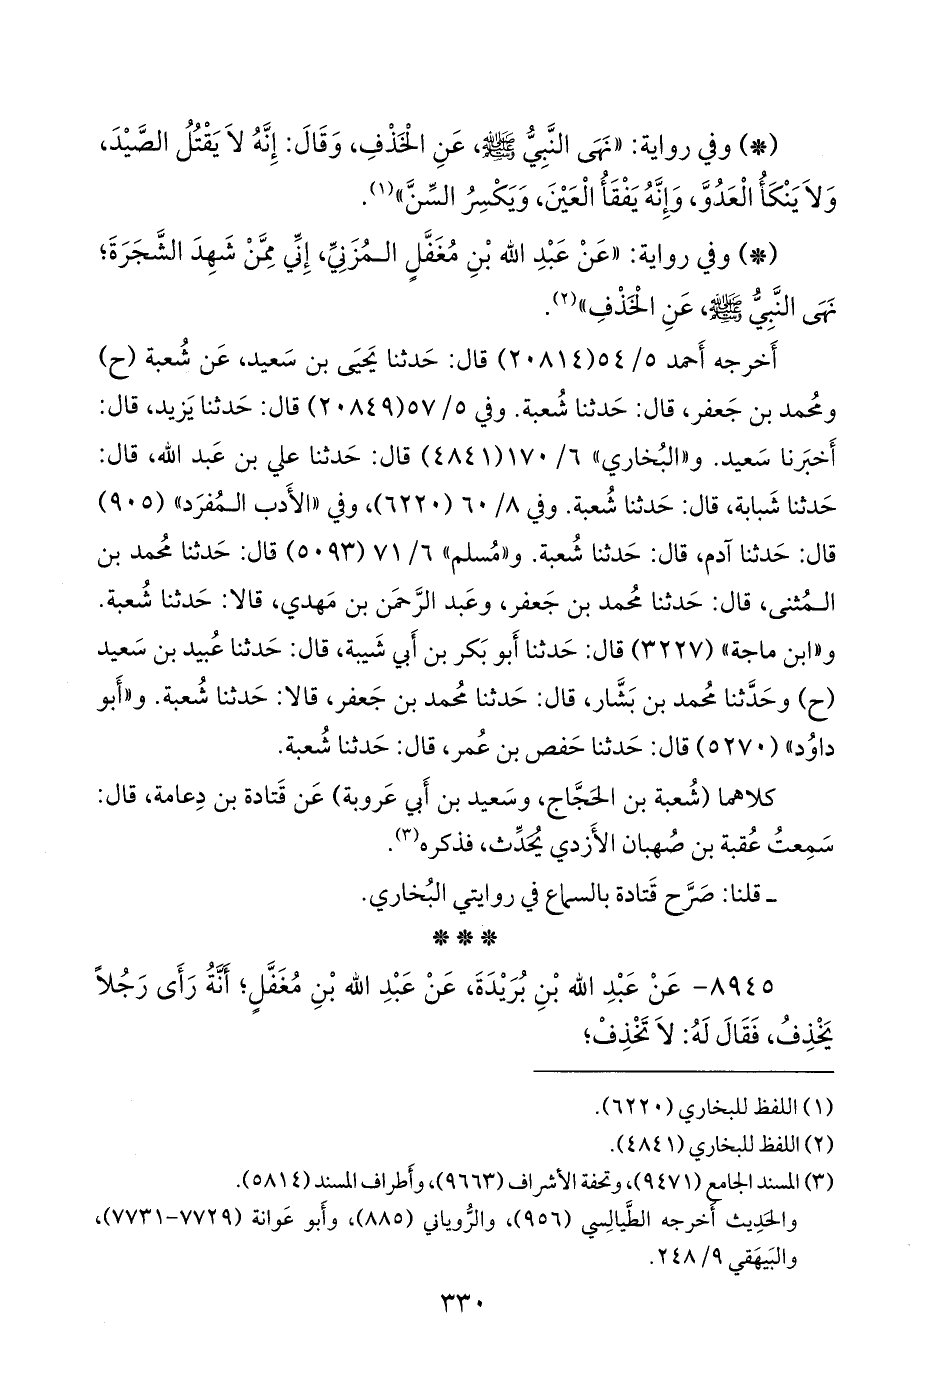 (*) وفي رواية: «نَهَى النَّبِيُّ ﷺ، عَنِ الْخَذْفِ، وَقَالَ: إِنَّهُ لاَ يَقْتُلُ الصَّيْدَ،
وَلاَ يَنْكَأُ الْعَدُوَّ، وَإِنَّهُ يَفْقَأُ الْعَيْنَ، وَيَكْسِرُ السِّنَّ»(١).
(*) وفي رواية: «عَنْ عَبْدِ الله بْنِ مُغَفَّلٍ الـمُزَنِيِّ، إِنِّي مِمَّنْ شَهِدَ الشَّجَرَةَ؛
نَهَى النَّبِيُّ ﷺ، عَنِ الْخَذْفِ»(٢).
أَخرجه أَحمد ٥/ ٥٤(٢٠٨١٤) قال: حَدثنا يَحيَى بن سَعيد، عَن شُعبة (ح)
ومُحمد بن جَعفر، قال: حَدثنا شُعبة. وفي ٥/ ٥٧(٢٠٨٤٩) قال: حَدثنا يَزيد، قال:
أَخبَرنا سَعيد. و«البُخاري» ٦/ ١٧٠(٤٨٤١) قال: حَدثنا علي بن عَبد الله، قال:
حَدثنا شَبابة، قال: حَدثنا شُعبة. وفي ٨/ ٦٠ (٦٢٢٠)، وفي «الأَدب الـمُفرَد» (٩٠٥)
قال: حَدثنا آدم، قال: حَدثنا شُعبة. و«مُسلم» ٦/ ٧١ (٥٠٩٣) قال: حَدثنا مُحمد بن
الـمُثنى، قال: حَدثنا مُحمد بن جَعفر، وعَبد الرَّحمَن بن مَهدي، قالا: حَدثنا شُعبة.
و«ابن ماجة» (٣٢٢٧) قال: حَدثنا أَبو بَكر بن أَبي شَيبة، قال: حَدثنا عُبيد بن سَعيد
(ح) وحَدَّثنا مُحمد بن بَشَّار، قال: حَدثنا مُحمد بن جَعفر، قالا: حَدثنا شُعبة. و«أَبو
داوُد» (٥٢٧٠) قال: حَدثنا حَفص بن عُمر، قال: حَدثنا شُعبة.
كلاهما (شُعبة بن الحَجَّاج، وسَعيد بن أَبي عَروبة) عَن قَتادة بن دِعامة، قال:
سَمِعتُ عُقبة بن صُهبان الأَزدي يُحَدِّث، فذكره(٣).
ـ قلنا: صَرَّح قَتادة بالسماع في روايتي البُخاري.
* * *
٨٩٤٥- عَنْ عَبْدِ الله بْنِ بُرَيْدَةَ، عَنْ عَبْدِ الله بْنِ مُغَفَّلٍ؛ أَنَّهُ رَأَى رَجُلاً
يَخْذِفُ، فَقَالَ لَهُ: لاَ تَخْذِفْ؛
(١) اللفظ للبخاري (٦٢٢٠).
(٢) اللفظ للبخاري (٤٨٤١).
(٣) المسند الجامع (٩٤٧١)، وتحفة الأشراف (٩٦٦٣)، وأطراف المسند (٥٨١٤).
والحَدِيث أَخرجه الطَّيالِسي (٩٥٦)، والرُّوياني (٨٨٥)، وأَبو عَوانة (٧٧٢٩-٧٧٣١)،
والبَيهَقي ٩/ ٢٤٨.
٣٣٠